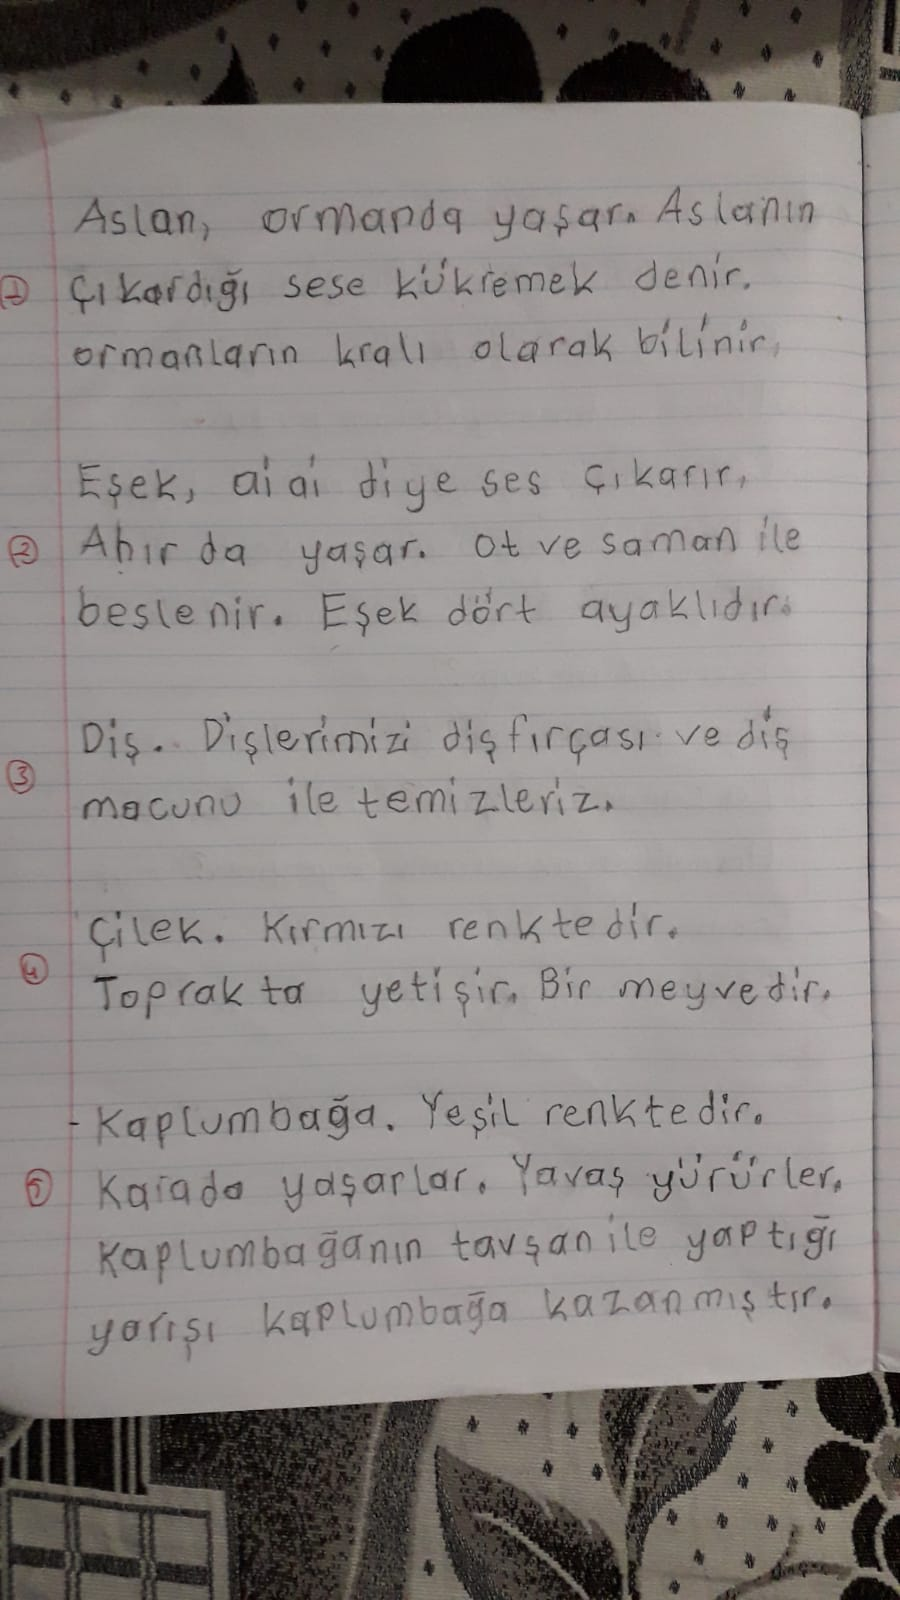 Aslan, ormanda yaşar. Aslanın
① çıkardığı sese kükremek denir.
ormanların kralı olarak bilinir.
Eşek, ai ai diye ses çıkarır.
② Ahır da yaşar. Ot ve saman ile
beslenir. Eşek dört ayaklıdır.
Diş. Dişlerimizi diş fırçası ve diş
③ macunu ile temizleriz.
Çilek. Kırmızı renktedir.
④ Toprakta yetişir. Bir meyvedir.
- Kaplumbağa. Yeşil renktedir.
⑤ Karada yaşarlar. Yavaş yürürler.
Kaplumbağanın tavşan ile yaptığı
yarışı kaplumbağa kazanmıştır.